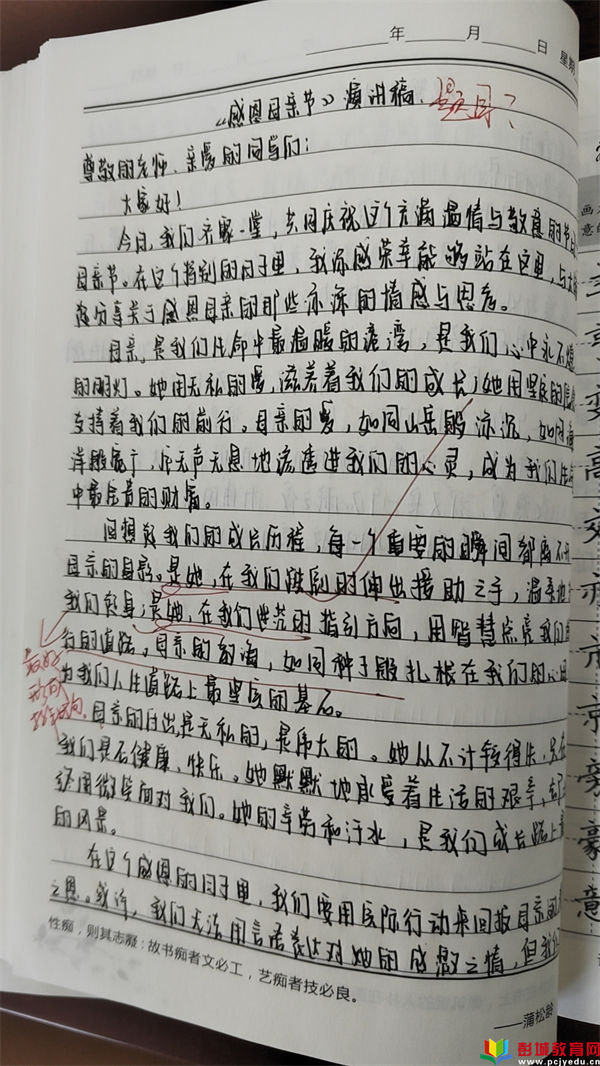 年 月 日 星期
《感恩母亲节》演讲稿. 题目?
尊敬的老师、亲爱的同学们:
大家好!
今日,我们齐聚一堂,共同庆祝这个充满温情与敬意的节日
母亲节。在这个特别的日子里,我深感荣幸能够站在这里,与大
家分享关于感恩母亲的那些深深的情感与思考。
母亲,是我们生命中最温暖的港湾,是我们心中永不熄
的明灯。她用无私的爱,滋养着我们的成长;她用坚定的信
支持着我们的前行。母亲的爱,如同山岳般深沉,如同海
洋般宽广,在无声无息地流进我们的心灵,成为我们生
中最宝贵的财富。
回想我们的成长历程,每一个重要的瞬间都离不开
母亲的身影。是她,在我们跌倒时伸出援助之手,温柔地
我们起身;是她,在我们迷茫的指引方向,用智慧点亮我们前
行的道路。母亲的教诲,如同种子般扎根在我们的心田
为我们人生道路上最坚实的基石。
最好
形成
排比句
母亲的付出是无私的,是伟大的。她从不计较得失,只在
我们是否健康、快乐。她默默地承受着生活的艰辛,却
终用微笑面对我们。她的辛劳和汗水,是我们成长路上
的风景。
在这个感恩的日子里,我们要用实际行动来回报母亲的
之恩。或许,我们无法用言语表达对她的感激之情,但我们
性痴,则其志凝:故书痴者文必工,艺痴者技必良。
——蒲松龄
彭城教育网
www.pcjyedu.cn